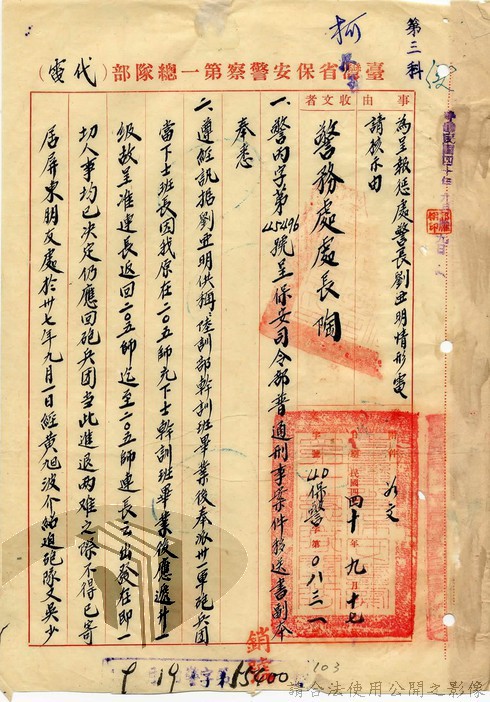 第三科
臺灣省保安警察第一總隊部(代電)
事由
為呈報懲處警長劉亞明情形電
請核示由
收文者
警務處處長陶
附件
如文
民國四十年九月十七
40保警 字第 〇八三一 號
一、警丙字第45496號呈保安司令部普通刑事案件移送書副本
奉悉
二、遵經訊据劉亞明供稱:陸訓部幹訓班畢業後奉派卅一軍砲兵團
當下士班長因我原在二〇五師充下士幹訓班畢業後應遞升一
級故呈准連長返回二〇五師迄至二〇五師連長云出發在即一
切人事均已決定仍應回砲兵團当此進退兩难之際不得已寄
居屏東朋友處於卅七年九月一日經黄旭波介紹追砲隊又吳少
9 19
55400
103
請合法使用公開之影像